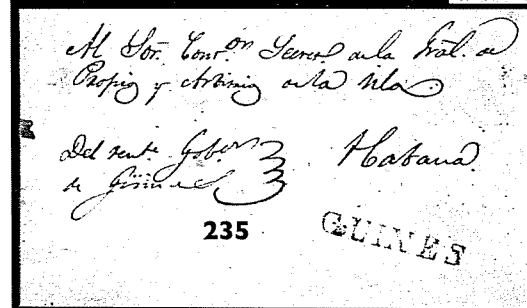 Al Sor. Cont.on Secret. de la Gral. de
Propios y Arbitrios de la Isla
Del tente. Gobor. Habana.
de Güines
235
GUINES